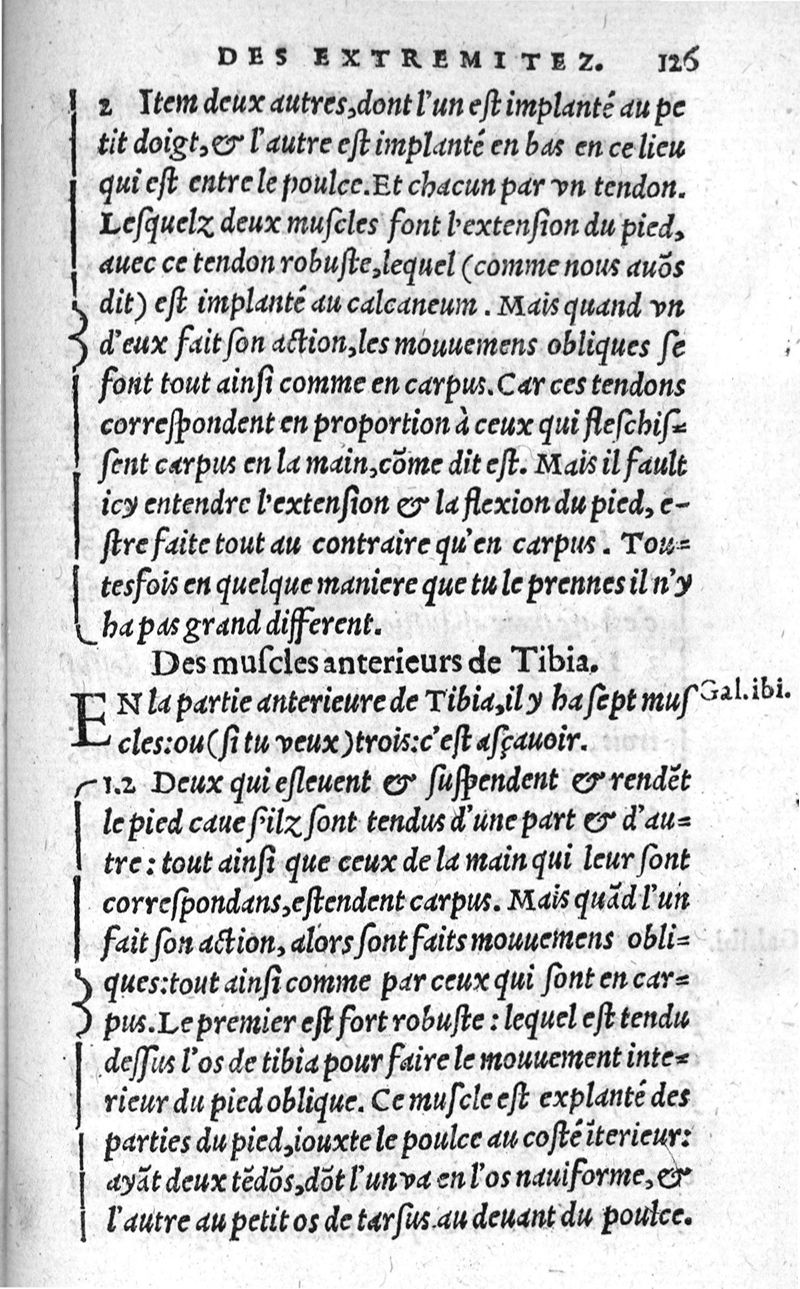 DES EXTREMITEZ. 126
2 Item deux autres, dont l'un eſt implanté au pe
tit doigt, & l'autre eſt implanté en bas en ce lieu
qui eſt entre le poulce. Et chacun par vn tendon.
Leſquelz deux muſcles font l'extenſion du pied,
auec ce tendon robuſte, lequel (comme nous auõs
dit) eſt implanté au calcaneum. Mais quand vn
d'eux fait ſon action, les mouuemens obliques ſe
font tout ainſi comme en carpus. Car ces tendons
correſpondent en proportion à ceux qui fleſchiſ-
ſent carpus en la main, cõme dit eſt. Mais il fault
icy entendre l'extenſion & la flexion du pied, e-
ſtre faite tout au contraire qu'en carpus. Tou-
tesfois en quelque maniere que tu le prennes il n'y
ha pas grand different.
Des muſcles anterieurs de Tibia.
EN la partie anterieure de Tibia, il y ha ſept muſ Gal. ibi.
cles: ou (ſi tu veux) trois: c'eſt aſçauoir.
1.2 Deux qui eſleuent & ſuſpendent & rendẽt
le pied caue ſ'ilz ſont tendus d'une part & d'au-
tre: tout ainſi que ceux de la main qui leur ſont
correſpondans, eſtendent carpus. Mais quãd l'un
fait ſon action, alors ſont faits mouuemens obli-
ques: tout ainſi comme par ceux qui ſont en car-
pus. Le premier eſt fort robuſte: lequel eſt tendu
deſſus l'os de tibia pour faire le mouuement inte-
rieur du pied oblique. Ce muſcle eſt explanté des
parties du pied, iouxte le poulce au coſté ĩterieur:
ayãt deux tẽdõs, dõt l'un va en l'os nauiforme, &
l'autre au petit os de tarſus au deuant du poulce.